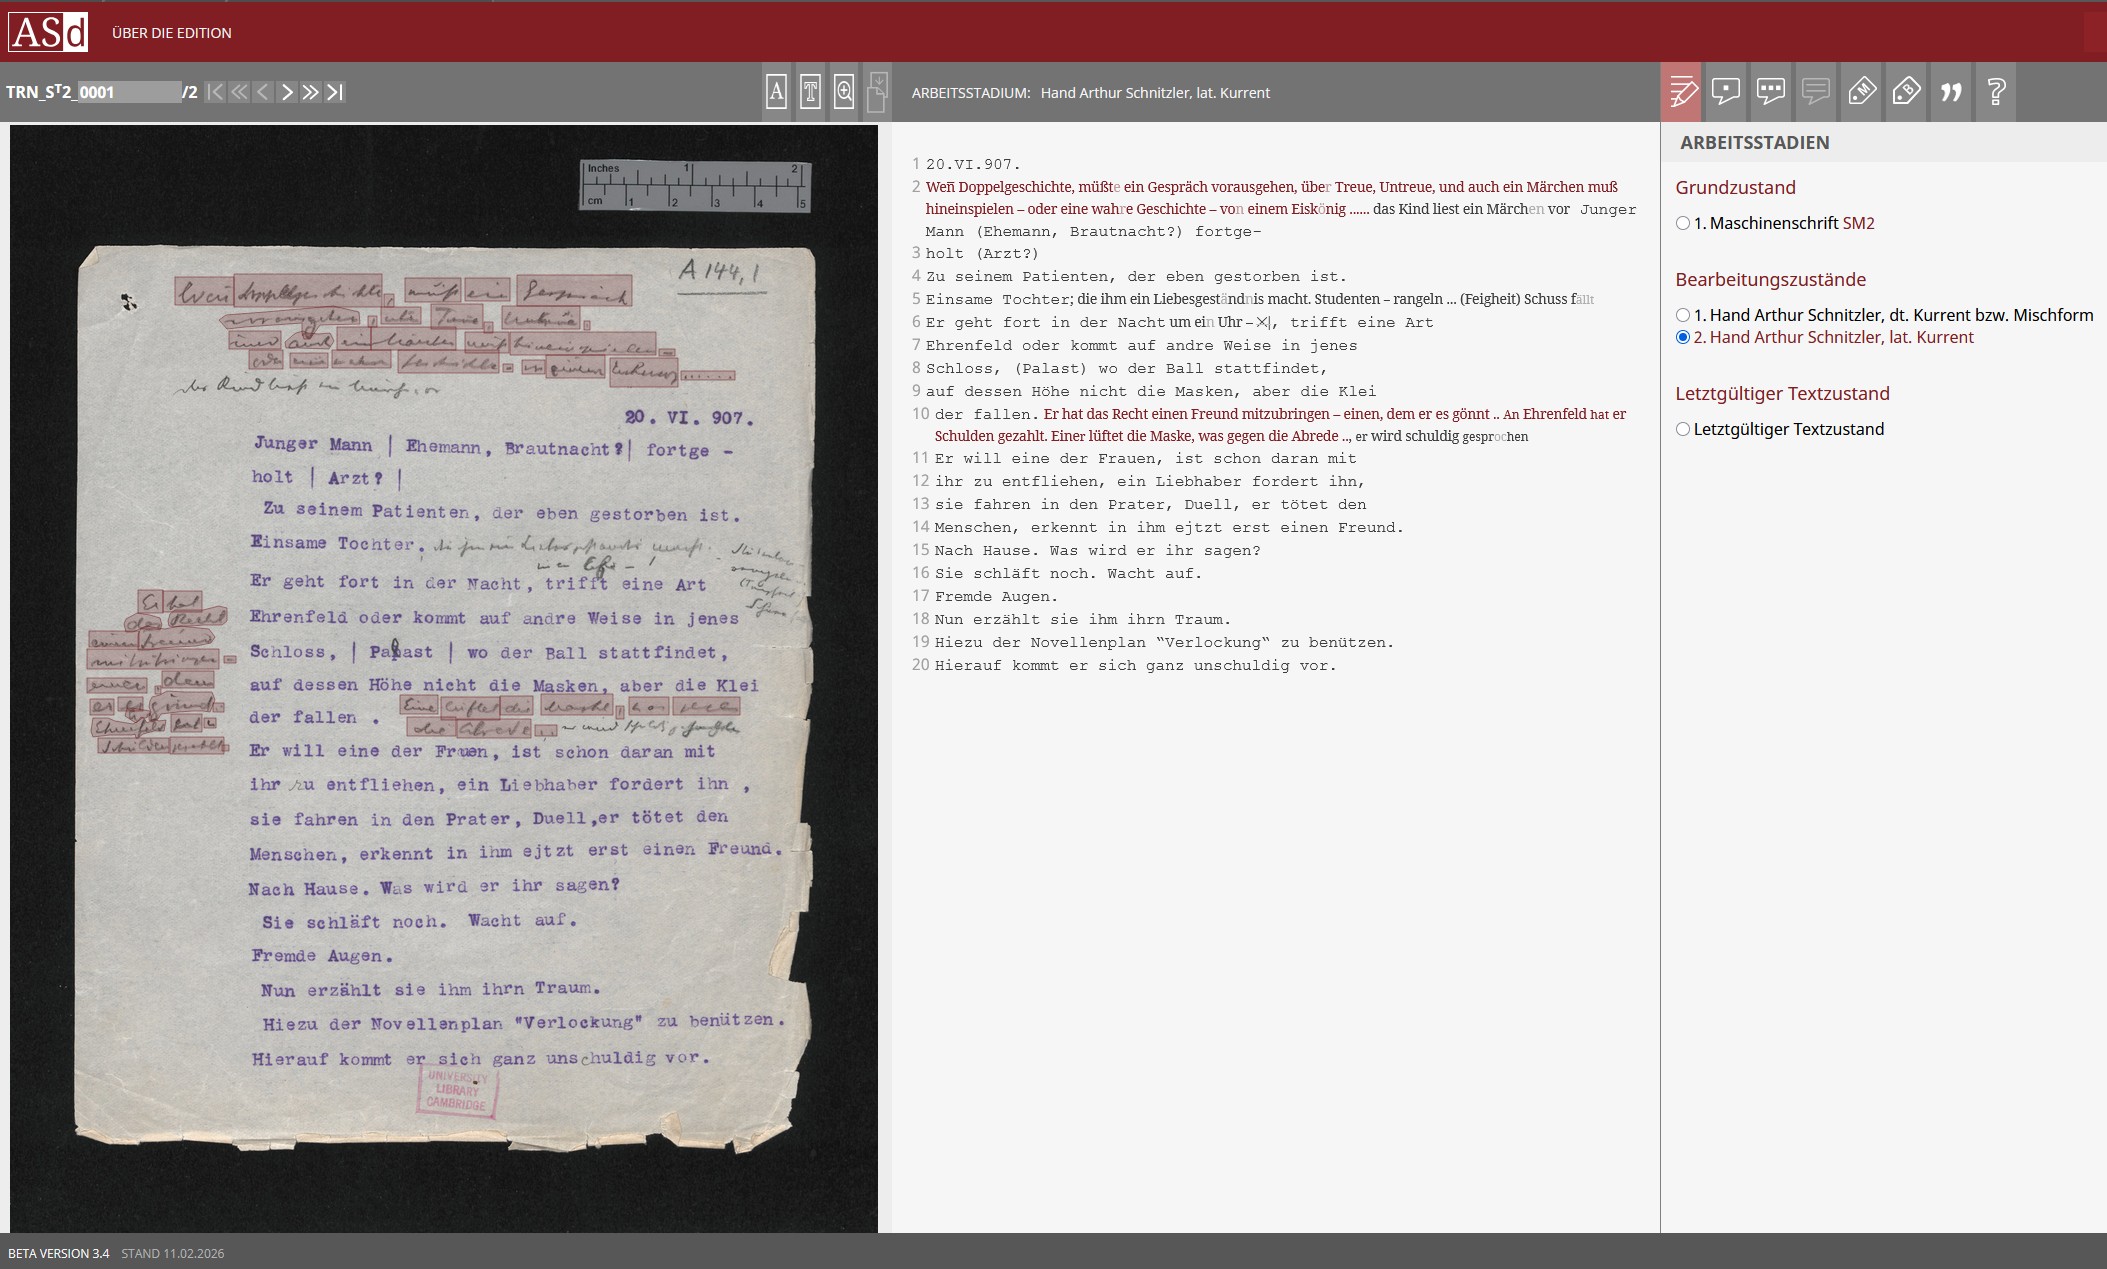 ASd ÜBER DIE EDITION
TRN_Sᵀ2_ 0001 /2
A T
ARBEITSSTADIUM: Hand Arthur Schnitzler, lat. Kurrent
M B ” ?
Inches 1 2
cm 1 2 3 4 5
A 144,1
20. VI. 907.
Junger Mann | Ehemann, Brautnacht?| fortge -
holt | Arzt? |
Zu seinem Patienten, der eben gestorben ist.
Einsame Tochter.
Er geht fort in der Nacht, trifft eine Art
Ehrenfeld oder kommt auf andre Weise in jenes
Schloss, | Palast | wo der Ball stattfindet,
auf dessen Höhe nicht die Masken, aber die Klei
der fallen .
Er will eine der Frauen, ist schon daran mit
ihr zu entfliehen, ein Liebhaber fordert ihn ,
sie fahren in den Prater, Duell,er tötet den
Menschen, erkennt in ihm ejtzt erst einen Freund.
Nach Hause. Was wird er ihr sagen?
Sie schläft noch. Wacht auf.
Fremde Augen.
Nun erzählt sie ihm ihrn Traum.
Hiezu der Novellenplan "Verlockung" zu benützen.
Hierauf kommt er sich ganz unschuldig vor.
UNIVERSITY
LIBRARY
CAMBRIDGE
1 20.VI.907.
2 Wen̅ Doppelgeschichte, müßte ein Gespräch vorausgehen, über Treue, Untreue, und auch ein Märchen muß
hineinspielen – oder eine wahre Geschichte – von einem Eiskönig ...... das Kind liest ein Märchen vor Junger
Mann (Ehemann, Brautnacht?) fortge–
3 holt (Arzt?)
4 Zu seinem Patienten, der eben gestorben ist.
5 Einsame Tochter; die ihm ein Liebesgeständnis macht. Studenten – rangeln ... (Feigheit) Schuss fällt
6 Er geht fort in der Nacht um ein Uhr – ╳|, trifft eine Art
7 Ehrenfeld oder kommt auf andre Weise in jenes
8 Schloss, (Palast) wo der Ball stattfindet,
9 auf dessen Höhe nicht die Masken, aber die Klei
10 der fallen. Er hat das Recht einen Freund mitzubringen – einen, dem er es gönnt .. An Ehrenfeld hat er
Schulden gezahlt. Einer lüftet die Maske, was gegen die Abrede .., er wird schuldig gesprochen
11 Er will eine der Frauen, ist schon daran mit
12 ihr zu entfliehen, ein Liebhaber fordert ihn,
13 sie fahren in den Prater, Duell, er tötet den
14 Menschen, erkennt in ihm ejtzt erst einen Freund.
15 Nach Hause. Was wird er ihr sagen?
16 Sie schläft noch. Wacht auf.
17 Fremde Augen.
18 Nun erzählt sie ihm ihrn Traum.
19 Hiezu der Novellenplan “Verlockung“ zu benützen.
20 Hierauf kommt er sich ganz unschuldig vor.
ARBEITSSTADIEN
Grundzustand
1. Maschinenschrift SM2
Bearbeitungszustände
1. Hand Arthur Schnitzler, dt. Kurrent bzw. Mischform
2. Hand Arthur Schnitzler, lat. Kurrent
Letztgültiger Textzustand
Letztgültiger Textzustand
BETA VERSION 3.4 STAND 11.02.2026